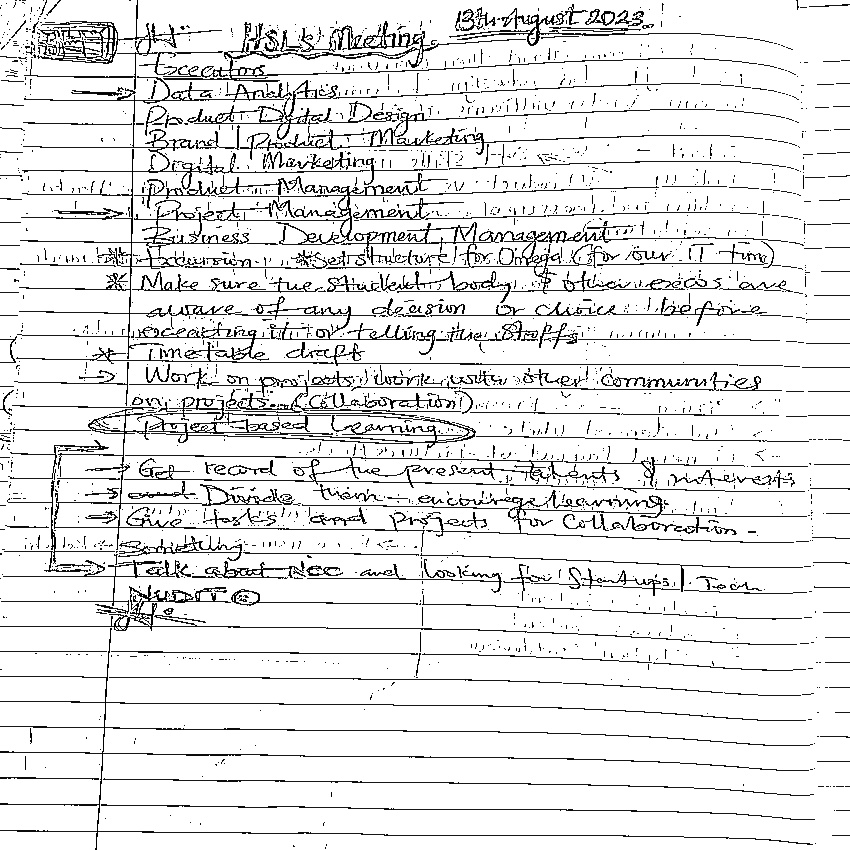 13th August 2023
HSLS Meeting
Data Analytics
Product Digital Design
Brand | Product Marketing
Digital Marketing
Product Management
→ Project Management
Business Development Management
* Excursion * Set structure for Omega (for our IT time)
* Make sure the student body & other execs are
aware of any decision or choice before
executing it or telling the staffs
* Timetable draft
→ Work on projects, work with other communities
on projects. (Collaboration)
Project based Learning
→ Get record of the present talents & interests
→ Divide them - encourage learning
→ Give tasks and projects for Collaboration -
→ Talk about NCC and looking for Startups | Tech
NUDIT